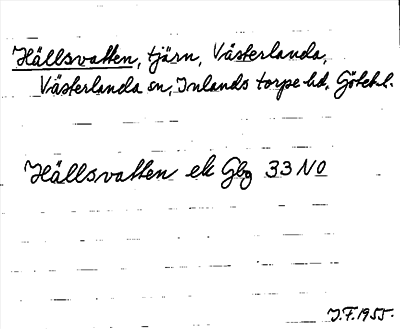 Hällsvatten, tjärn, Västerlanda,
Västerlanda sn, Inlands torpe hd, Götebl.
Hällsvatten ek Gbg 33 NO
J.F. 1955.